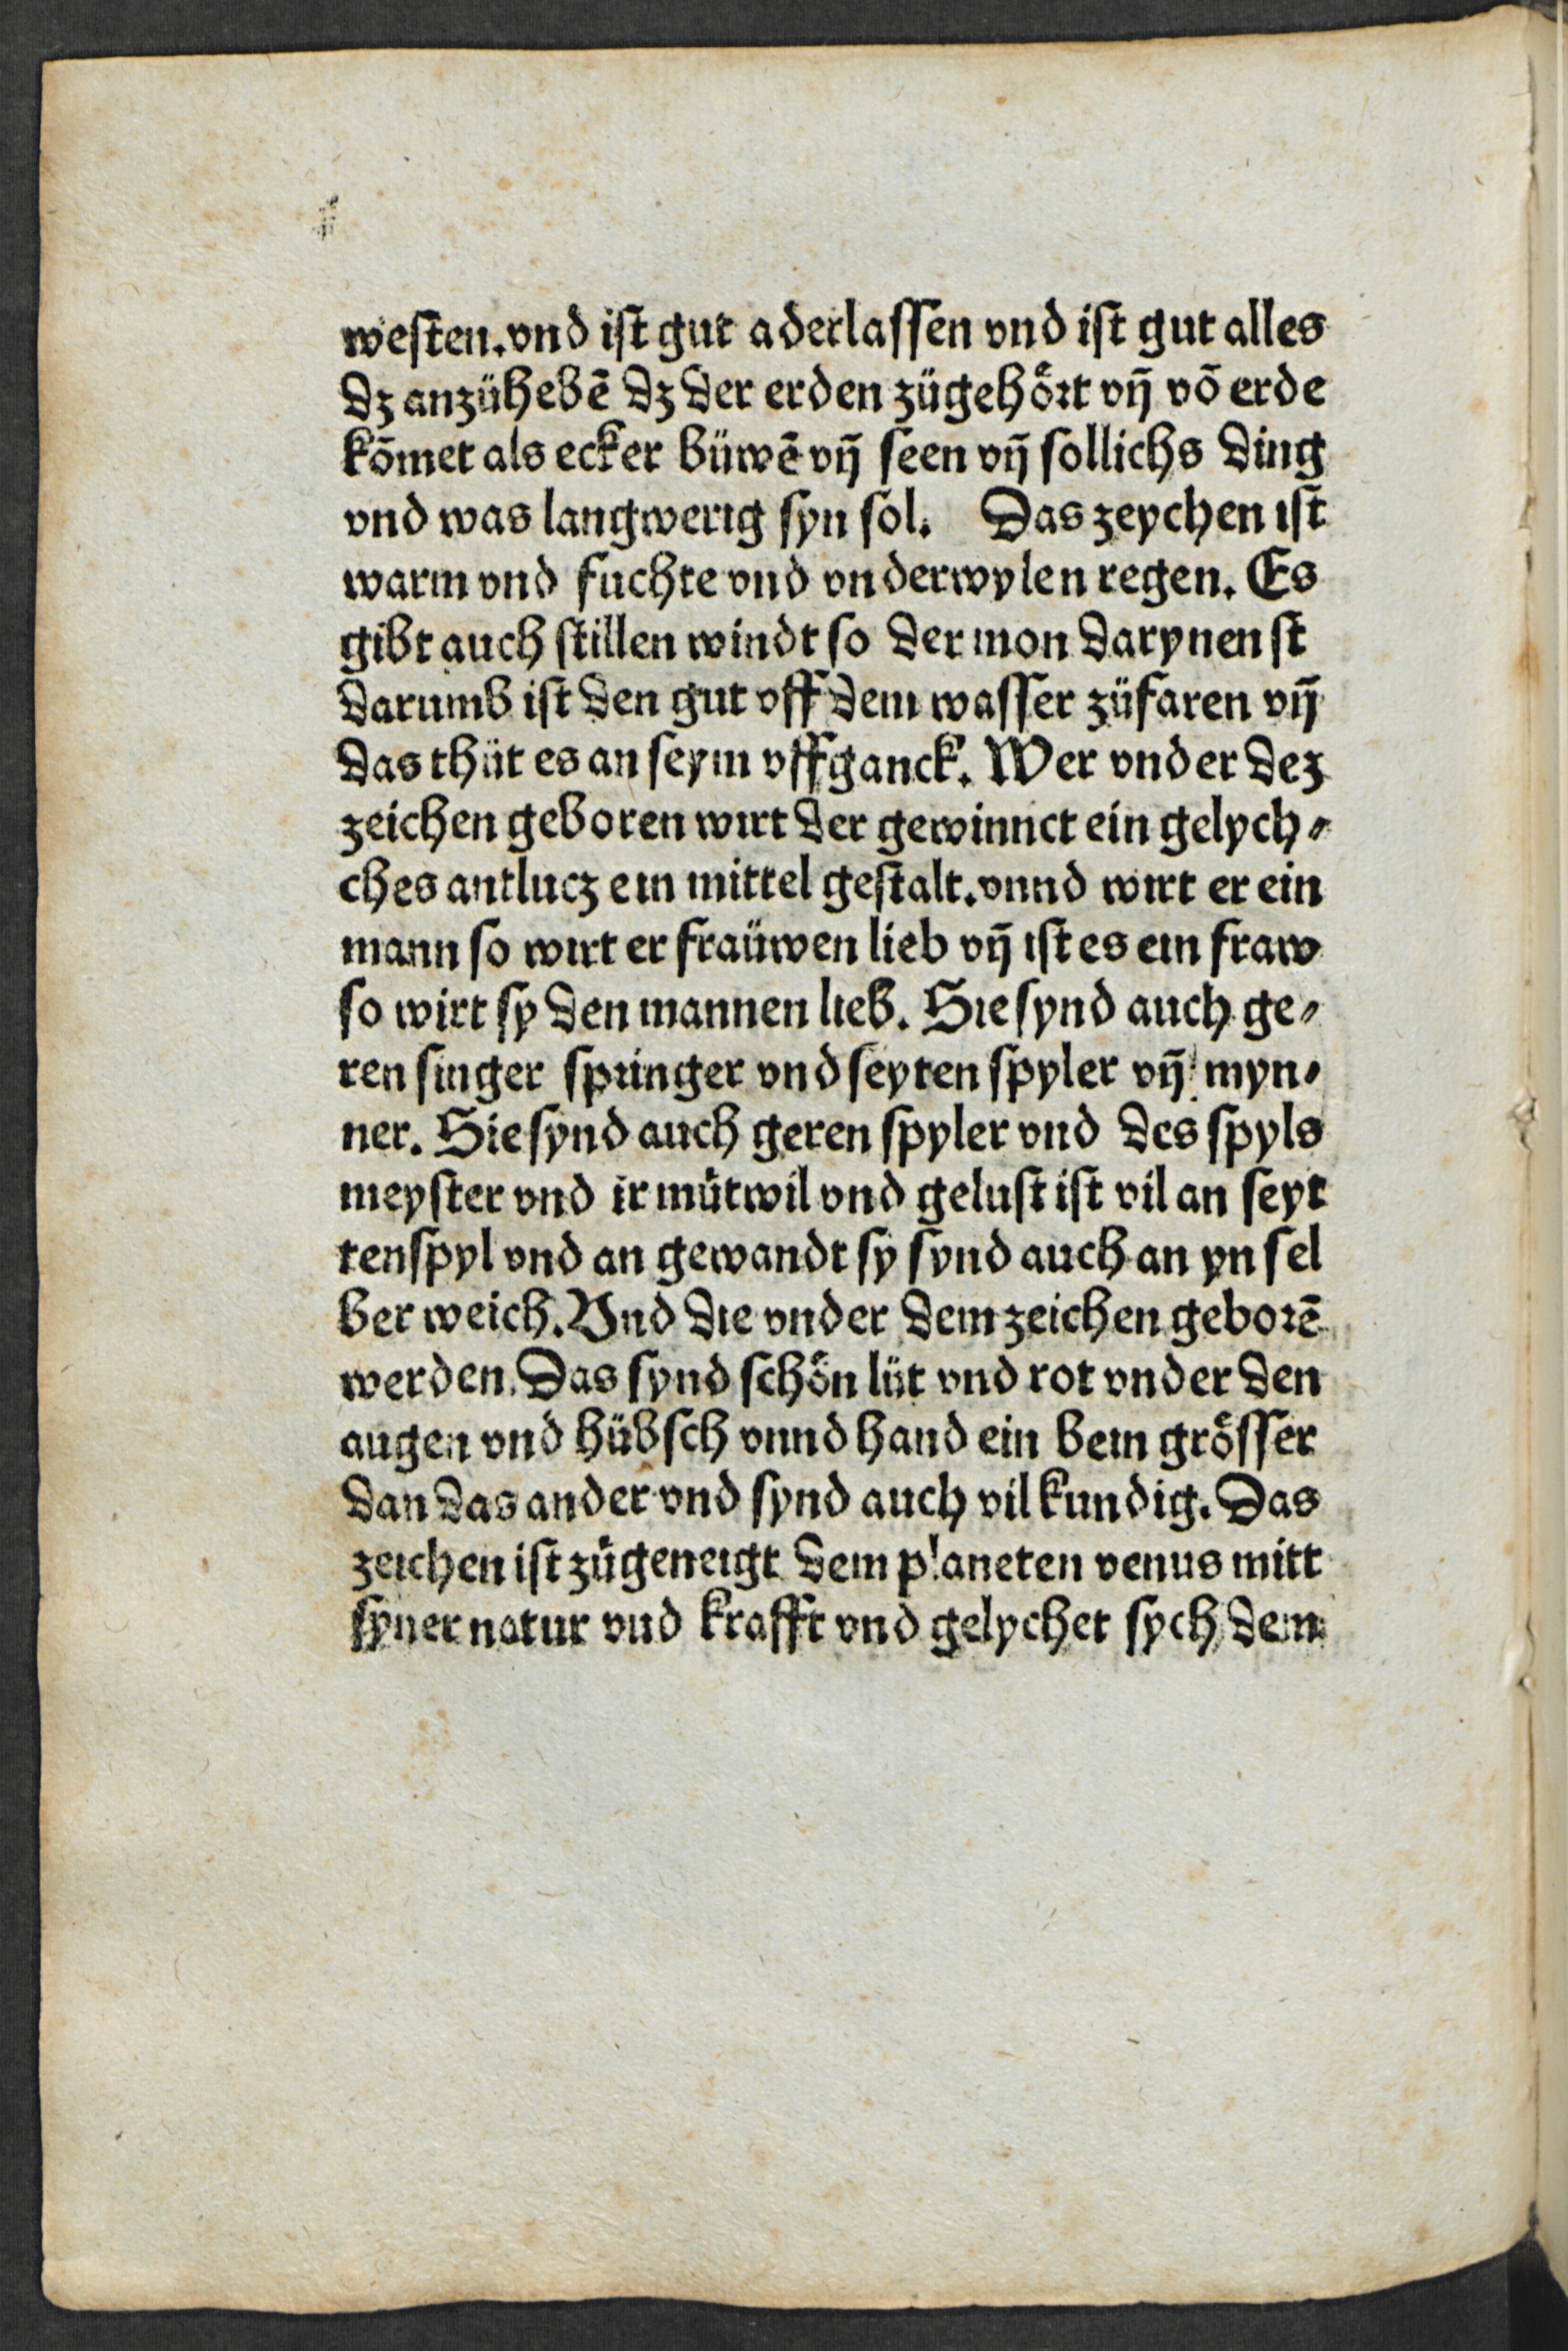 westen. vnd ist gut aderlassen vnd ist gut alles
dz anzühebē dz der erden zügehört vñ vō erde
kōmet als ecker büwē vñ seen vñ sollichs ding
vnd was langwerig syn sol. Das zeychen ist
warm vnd fuchte vnd vnderwylen regen. Es
gibt auch stillen windt so der mon darynen st
darumb ist den gut vff dem wasser züfaren vñ
das thüt es an seym vffganck. Wer vnder dez
zeichen geboren wirt der gewinnet ein gelych⸗
ches antlucz ein mittel gestalt. vnnd wirt er ein
mann so wirt er fraüwen lieb vñ ist es ein fraw
so wirt sy den mannen lieb. Sie synd auch ge⸗
ren singer springer vnd seyten spyler vñ myn⸗
ner. Sie synd auch geren spyler vnd des spyls
meyster vnd ir mütwil vnd gelust ist vil an seyt
tenspyl vnd an gewandt sy synd auch an yn sel
ber weich. Vnd die vnder dem zeichen geborē
werden. Das synd schön lüt vnd rot vnder den
augen vnd hübsch vnnd hand ein bein grösser
dan das ander vnd synd auch vil kundig. Das
zeichen ist zügeneigt dem planeten venus mitt
syner natur vnd krafft vnd gelychet sych dem